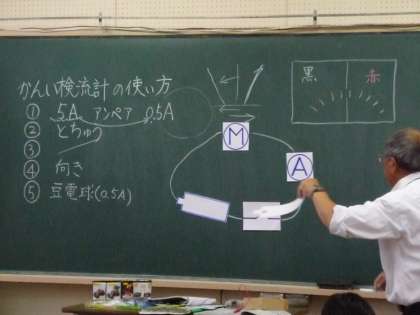 かんい検流計の使い方
① 5A アンペア 0.5A
② とちゅう
③
④ 向き
⑤ 豆電球(0.5A)
M
A
黒 赤